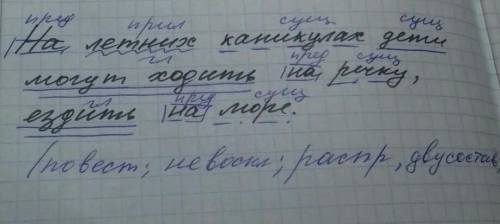 пред прил сущ сущ
На летних каникулах дети
гл пред
могут ходить на речку,
гл пред сущ
ездить на море.
(повест; невоскл; распр, двусостав,